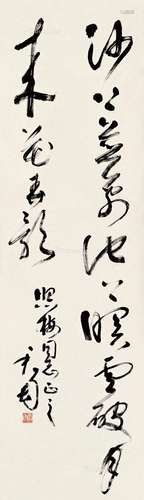 沙上并禽池上暝云破月
来花弄影
照梅同志正之